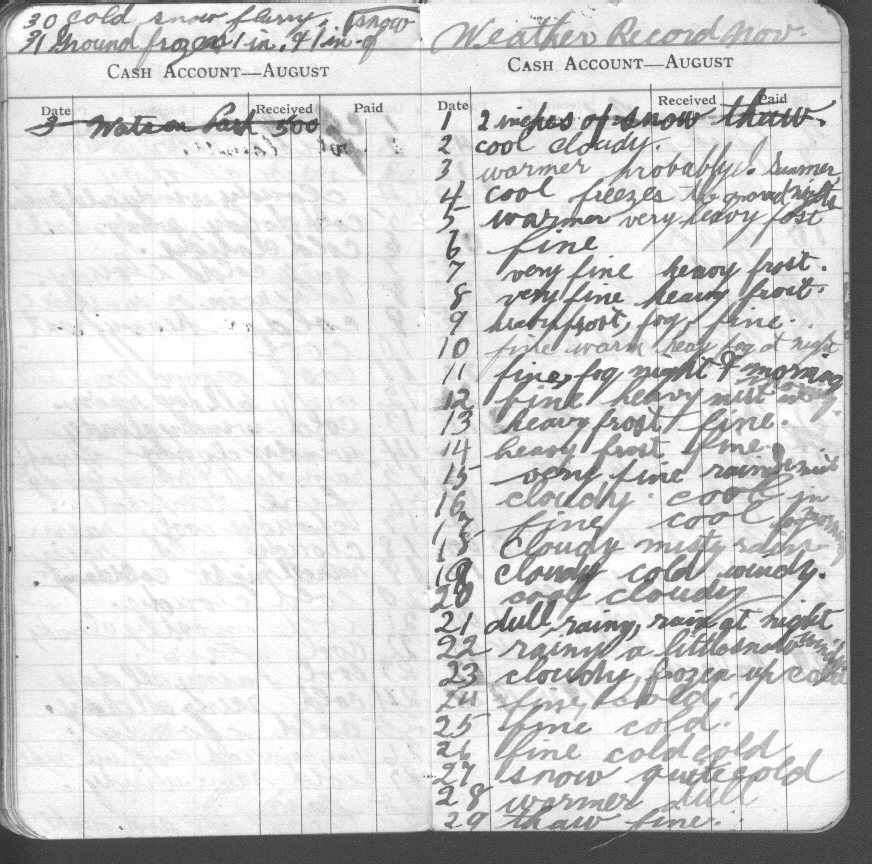 30 Cold snow flurry. snow
31 Ground frozen 1 in. 4 in. of
CASH ACCOUNT—AUGUST
Date Received Paid
3 Watson Park 500
Weather Record Nov.
CASH ACCOUNT—AUGUST
Date Received Paid
1 2 inches of snow thaw.
2 cool cloudy.
3 warmer probably I. Summer
4 cool freezes the ground nights
5 warmer very heavy fost
6 fine
7 very fine heavy frost.
8 very fine heavy frost.
9 heavy frost, fog, fine.
10 fine warm heavy fog at night
11 fine, fog night & morning
12 fine heavy mist
13 heavy frost fine.
14 heavy frost fine.
15 very fine rain
16 cloudy. cool in
17 fine cool morning
18 cloudy misty rain
19 cloudy cold windy.
20 cool cloudy
21 dull, rainy, rain at night
22 rainy a little snow
23 cloudy, frozen up cold
24 fine, cold.
25 fine cold.
26 fine cold cold
27 snow quite cold
28 warmer dull
29 thaw fine.